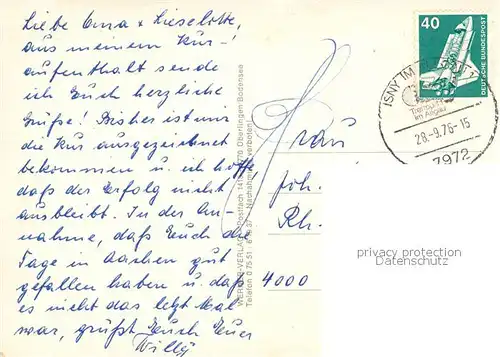 Liebe Oma + Lieselotte,
aus meinem Kur-
aufenthalt sende
ich Euch herzliche
Grüße! Bisher ist uns
die Kur ausgezeichnet
bekommen u. ich hoffe,
daß der Erfolg nicht
ausbleibt. In der An-
nahme, daß Euch die
Tage in Aachen gut
gefallen haben u. daß
es nicht das letzte Mal
war, grüßt Euch Euer
Willy
WERNER-VERLAG Postfach 7770 Überlingen Bodensee
Telefon 0 75 51 Nachahmung verboten!
40
DEUTSCHE BUNDESPOST
ISNY IM ALLGÄU
im Allgäu
28.-9.76-15
7972
Frau
Joh.
Rh.
4000
privacy protection
Datenschutz